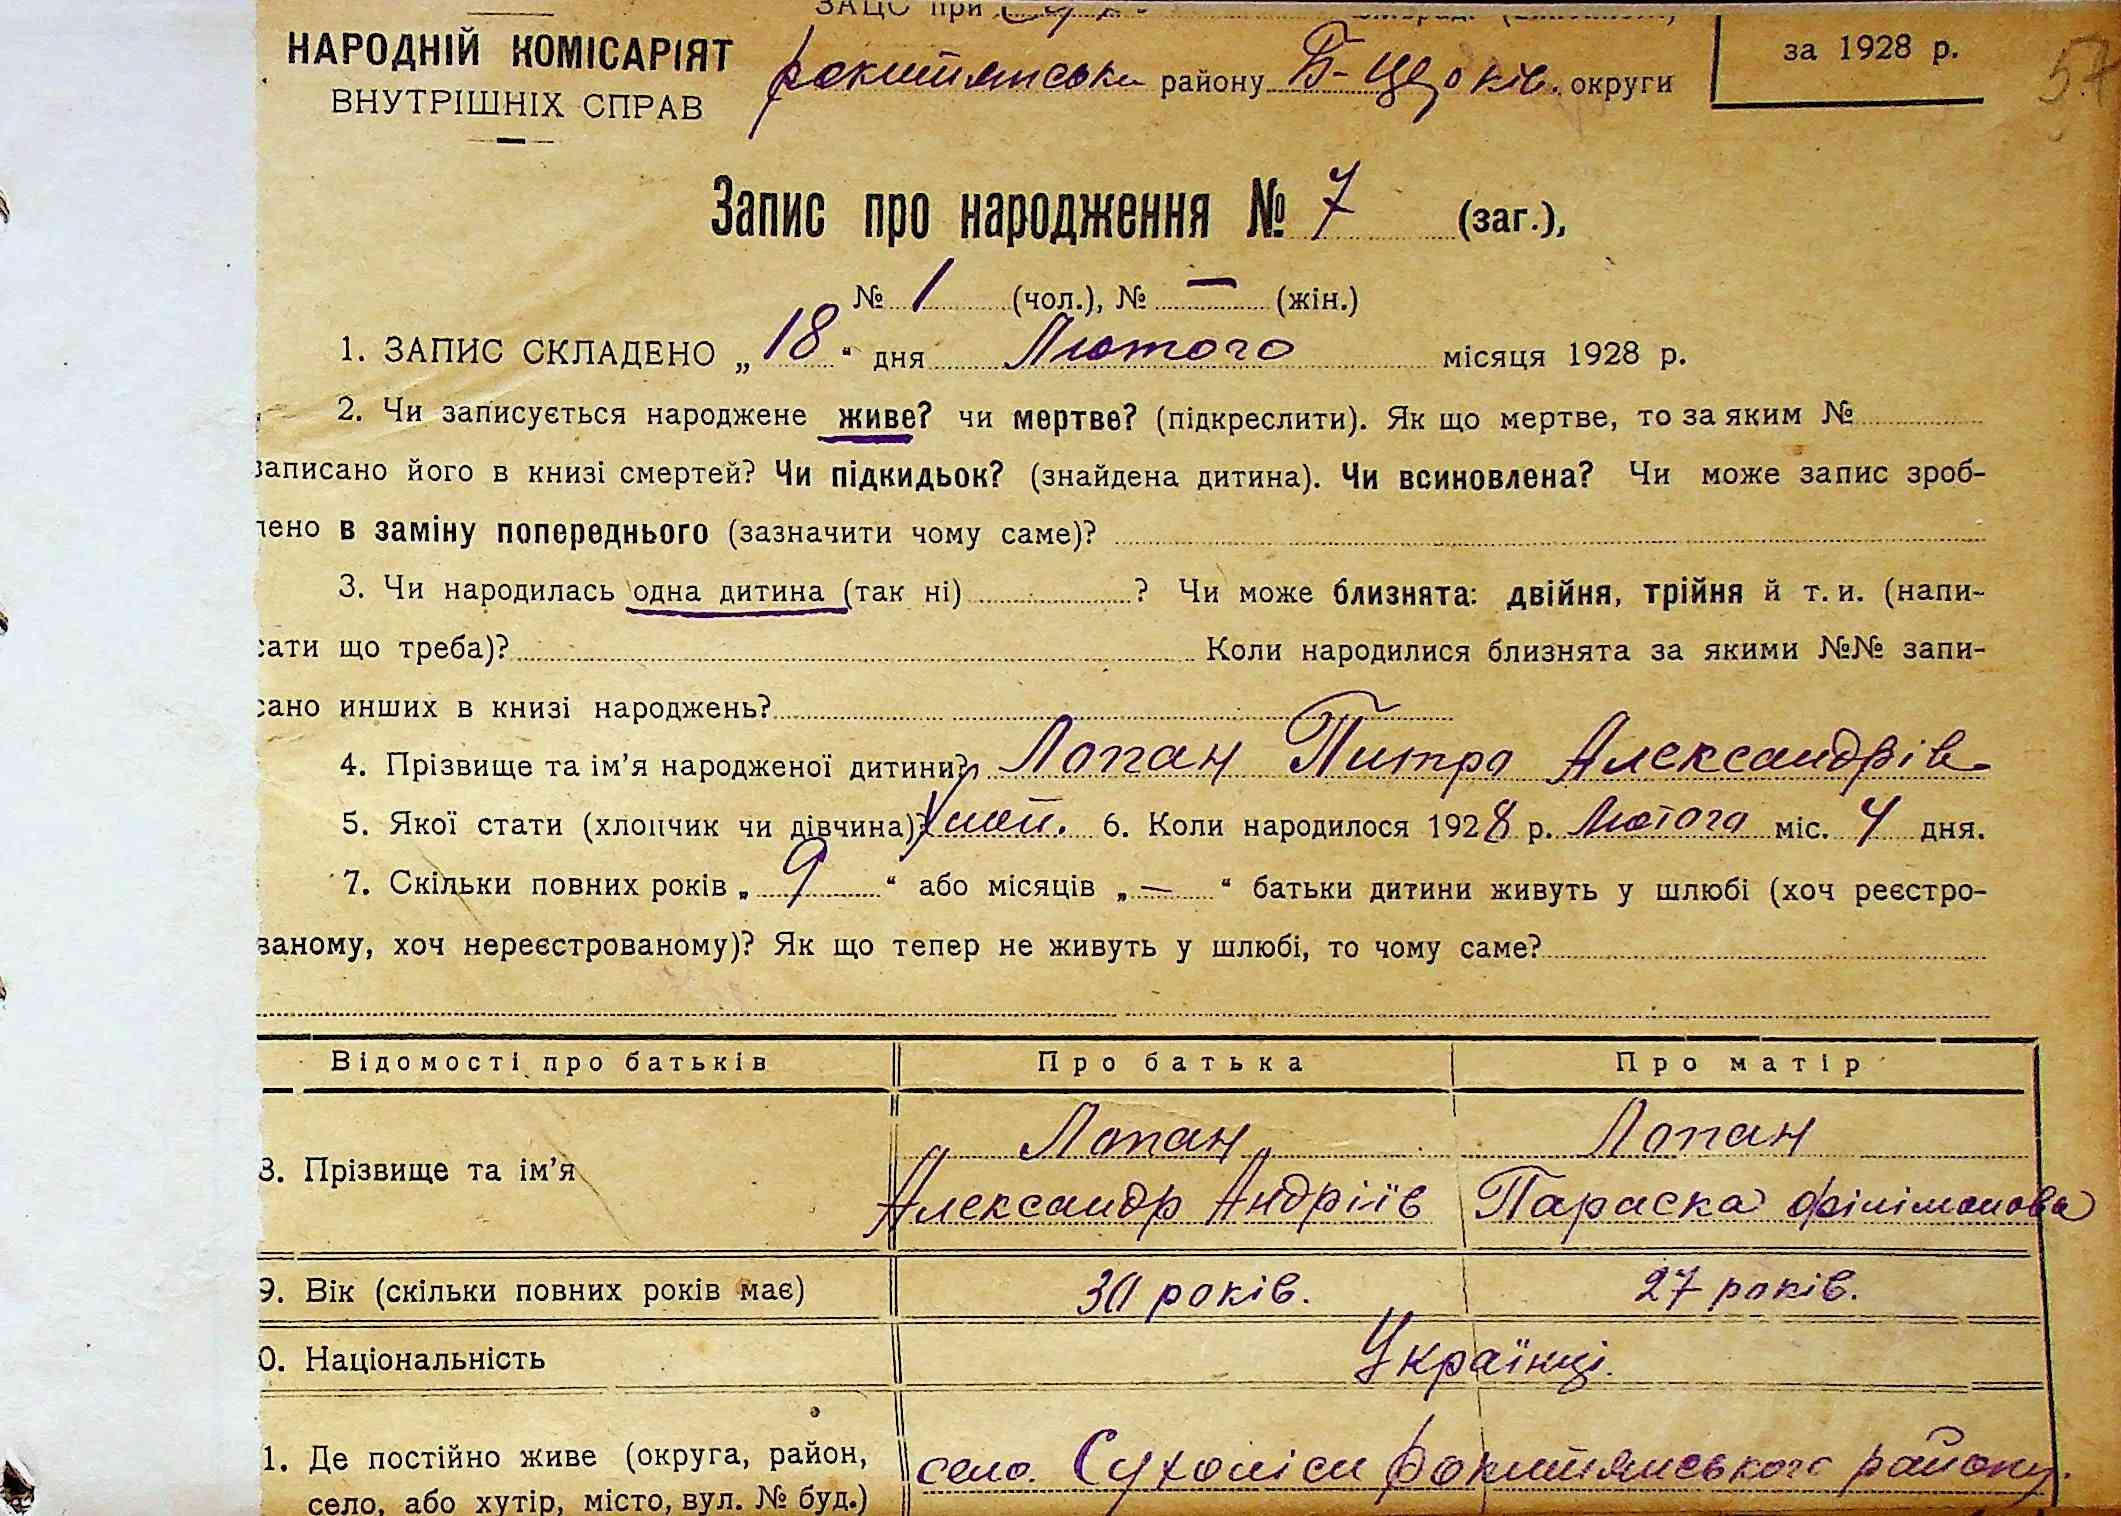 ЗАЦС при
НАРОДНІЙ КОМІСАРІЯТ
ВНУТРІШНІХ СПРАВ
рокитянськи району Б-Церків. округи
за 1928 р.
57
Запис про народження № 7 (заг.),
№ 1 (чол.), № — (жін.)
1. ЗАПИС СКЛАДЕНО „ 18 “ дня Лютого місяця 1928 р.
2. Чи записується народжене живе? чи мертве? (підкреслити). Як що мертве, то за яким №
записано його в книзі смертей? Чи підкидьок? (знайдена дитина). Чи всиновлена? Чи може запис зроб-
лено в заміну попереднього (зазначити чому саме)?
3. Чи народилась одна дитина (так ні) ? Чи може близнята: двійня, трійня й т. и. (напи-
сати що треба)? Коли народилися близнята за якими №№ запи-
сано инших в книзі народжень?
4. Прізвище та ім’я народженої дитини? Лопан Питро Александрів
5. Якої стати (хлопчик чи дівчина)? 6. Коли народилося 1928 р. Лютого міс. 4 дня.
7. Скільки повних років „ 9 “ або місяців „ — “ батьки дитини живуть у шлюбі (хоч реєстро-
ваному, хоч нереєстрованому)? Як що тепер не живуть у шлюбі, то чому саме?
Відомості про батьків Про батька Про матір
8. Прізвище та ім’я Лопан Лопан
Александр Андріїв Параска Філімонова
9. Вік (скільки повних років має) 30 років. 27 років.
0. Національність Українці.
1. Де постійно живе (округа, район, село. Сухоліси Рокитянського району.
село, або хутір, місто, вул. № буд.)